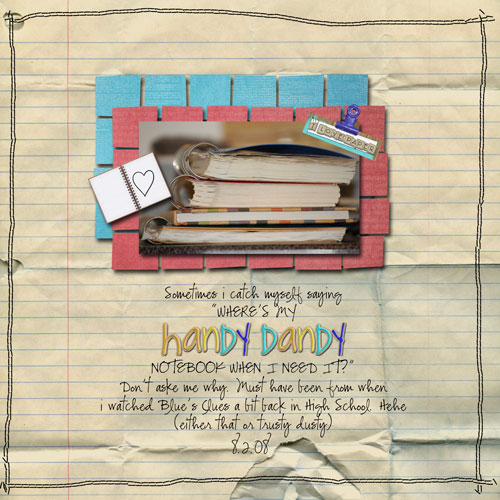 I LOVE PAPER
Sometimes i catch myself saying
"WHERE'S MY
HANDY DANDY
NOTEBOOK WHEN I NEED IT?"
Don't ask me why. Must have been from when
i watched Blue's Clues a bit back in High School. Hehe
(either that or trusty dusty)
8.2.08